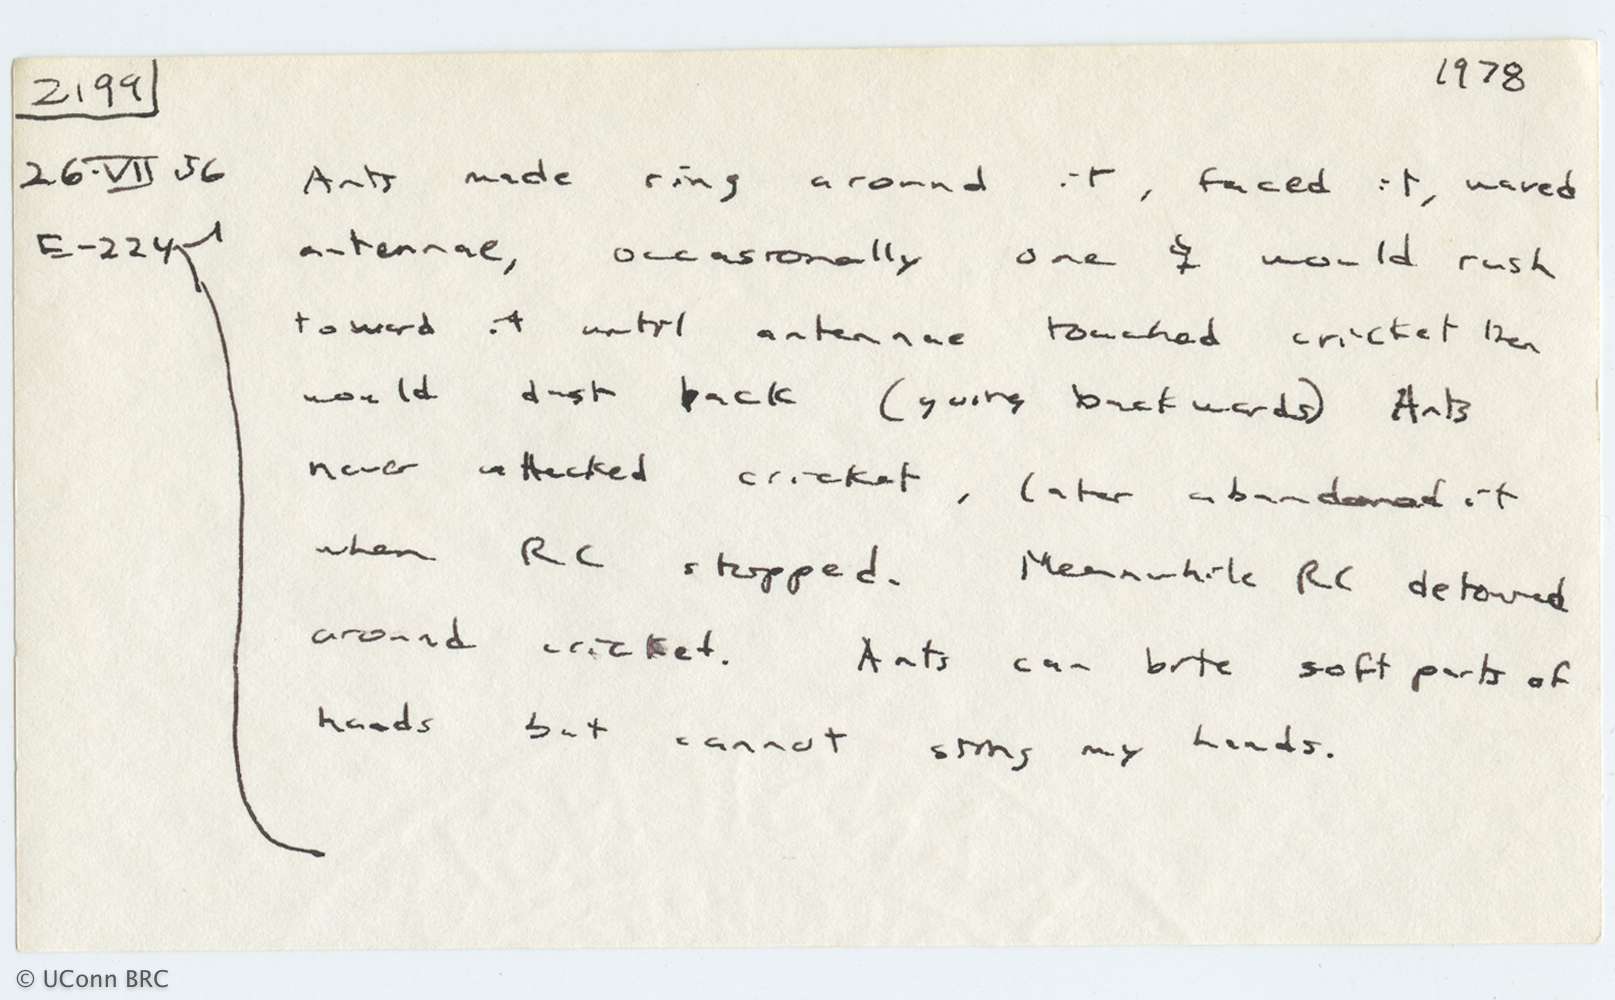 2199
1978
26·VII 56 Ants made ring around it, faced it, waved
E-224 antennae, occasionally one ☿ would rush
toward it until antennae touched cricket then
would dust back (going backwards) Ants
never attacked cricket, later abandoned it
when RC stopped. Meanwhile RC detoured
around cricket. Ants can bite soft parts of
hands but cannot sting my hands.
© UConn BRC